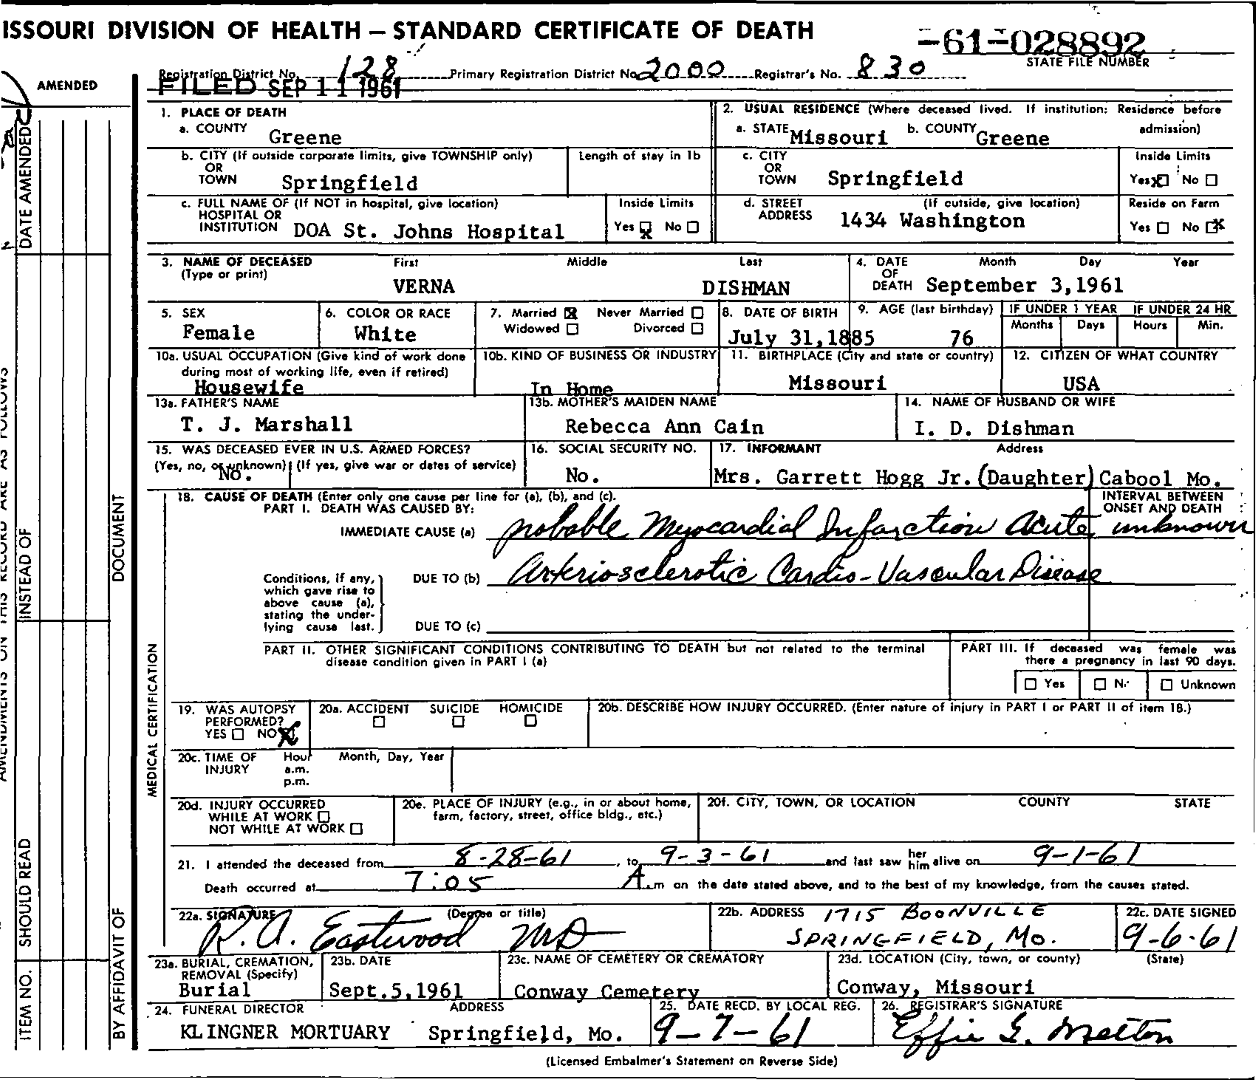 ISSOURI DIVISION OF HEALTH — STANDARD CERTIFICATE OF DEATH
-61-028892
STATE FILE NUMBER
Registration District No. 128 Primary Registration District No. 2000 Registrar's No. 830
FILED SEP 11 1961
AMENDED
DATE AMENDED
INSTEAD OF
DOCUMENT
SHOULD READ
ITEM NO.
BY AFFIDAVIT OF
AMENDMENTS ON THIS RECORD ARE AS FOLLOWS
MEDICAL CERTIFICATION
1. PLACE OF DEATH
a. COUNTY Greene
2. USUAL RESIDENCE (Where deceased lived. If institution: Residence before admission)
a. STATE Missouri b. COUNTY Greene
b. CITY (If outside corporate limits, give TOWNSHIP only) OR TOWN Springfield
Length of stay in 1b
c. CITY OR TOWN Springfield
Inside Limits Yes X No
c. FULL NAME OF (If NOT in hospital, give location) HOSPITAL OR INSTITUTION DOA St. Johns Hospital
Inside Limits Yes X No
d. STREET ADDRESS (If outside, give location) 1434 Washington
Reside on Farm Yes No X
3. NAME OF DECEASED (Type or print) First Middle Last
VERNA DISHMAN
4. DATE OF DEATH Month Day Year
September 3,1961
5. SEX Female
6. COLOR OR RACE White
7. Married X Never Married Widowed Divorced
8. DATE OF BIRTH July 31,1885
9. AGE (last birthday) 76
IF UNDER 1 YEAR Months Days
IF UNDER 24 HR Hours Min.
10a. USUAL OCCUPATION (Give kind of work done during most of working life, even if retired) Housewife
10b. KIND OF BUSINESS OR INDUSTRY In Home
11. BIRTHPLACE (City and state or country) Missouri
12. CITIZEN OF WHAT COUNTRY USA
13a. FATHER'S NAME T. J. Marshall
13b. MOTHER'S MAIDEN NAME Rebecca Ann Cain
14. NAME OF HUSBAND OR WIFE I. D. Dishman
15. WAS DECEASED EVER IN U.S. ARMED FORCES? (Yes, no, or unknown) (If yes, give war or dates of service) No.
16. SOCIAL SECURITY NO. No.
17. INFORMANT Address
Mrs. Garrett Hogg Jr.(Daughter) Cabool Mo.
18. CAUSE OF DEATH (Enter only one cause per line for (a), (b), and (c).
PART I. DEATH WAS CAUSED BY:
INTERVAL BETWEEN ONSET AND DEATH
IMMEDIATE CAUSE (a) probable Myocardial Infarction Acute unknown
Conditions, if any, which gave rise to above cause (a), stating the underlying cause last.
DUE TO (b) Arteriosclerotic Cardio-Vascular Disease
DUE TO (c)
PART II. OTHER SIGNIFICANT CONDITIONS CONTRIBUTING TO DEATH but not related to the terminal disease condition given in PART I (a)
PART III. If deceased was female was there a pregnancy in last 90 days.
Yes No Unknown
19. WAS AUTOPSY PERFORMED? YES NO X
20a. ACCIDENT SUICIDE HOMICIDE
20b. DESCRIBE HOW INJURY OCCURRED. (Enter nature of injury in PART I or PART II of item 18.)
20c. TIME OF INJURY Hour a.m. p.m. Month, Day, Year
20d. INJURY OCCURRED WHILE AT WORK NOT WHILE AT WORK
20e. PLACE OF INJURY (e.g., in or about home, farm, factory, street, office bldg., etc.)
20f. CITY, TOWN, OR LOCATION COUNTY STATE
21. I attended the deceased from 8-28-61, to 9-3-61 and last saw her him alive on 9-1-61
Death occurred at 7:05 A.m on the date stated above, and to the best of my knowledge, from the causes stated.
22a. SIGNATURE (Degree or title) R. A. Eastwood MD
22b. ADDRESS 1715 BOONVILLE SPRINGFIELD, MO.
22c. DATE SIGNED 9-6-61
23a. BURIAL, CREMATION, REMOVAL (Specify) Burial
23b. DATE Sept.5,1961
23c. NAME OF CEMETERY OR CREMATORY Conway Cemetery
23d. LOCATION (City, town, or county) (State) Conway, Missouri
24. FUNERAL DIRECTOR ADDRESS
KLINGNER MORTUARY Springfield, Mo.
25. DATE RECD. BY LOCAL REG. 9-7-61
26. REGISTRAR'S SIGNATURE Effie G. Melton
(Licensed Embalmer's Statement on Reverse Side)